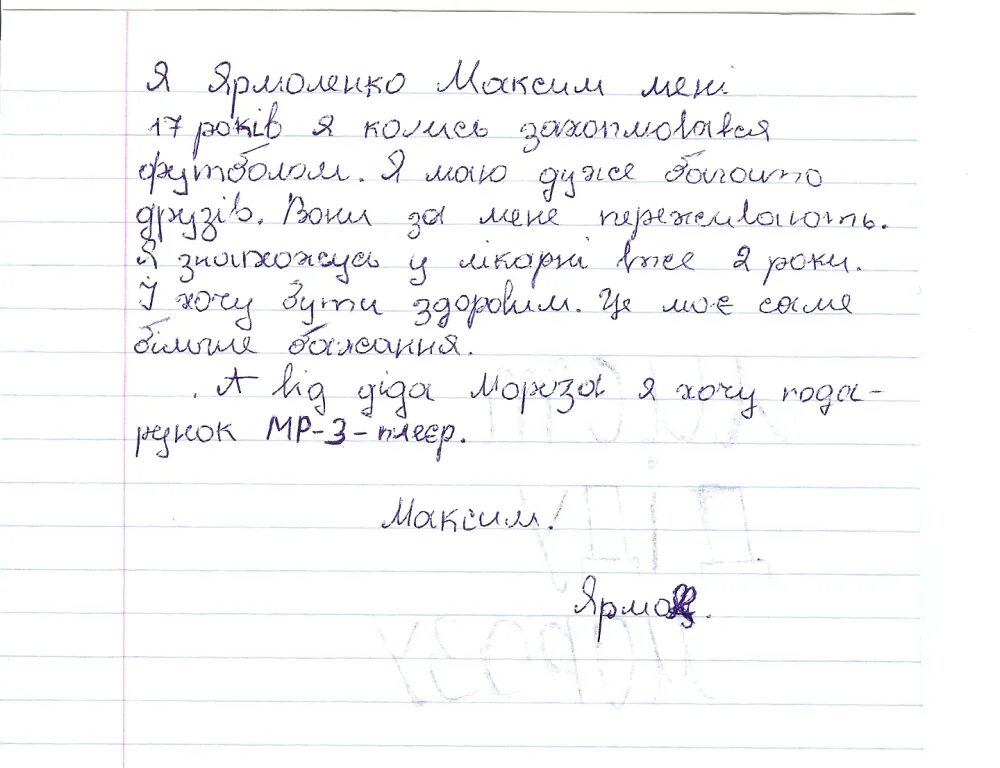 Я Ярмоленко Максим мені
17 років я колись захоплювався
футболом. Я маю дуже багато
друзів. Вони за мене переживають.
Я знахожусь у лікарні вже 2 роки.
І хочу бути здоровим. Це моє саме
більше бажання.
. А від діда Мороза я хочу пода-
рунок МР-3-плеєр.
Максим!
Ярмо